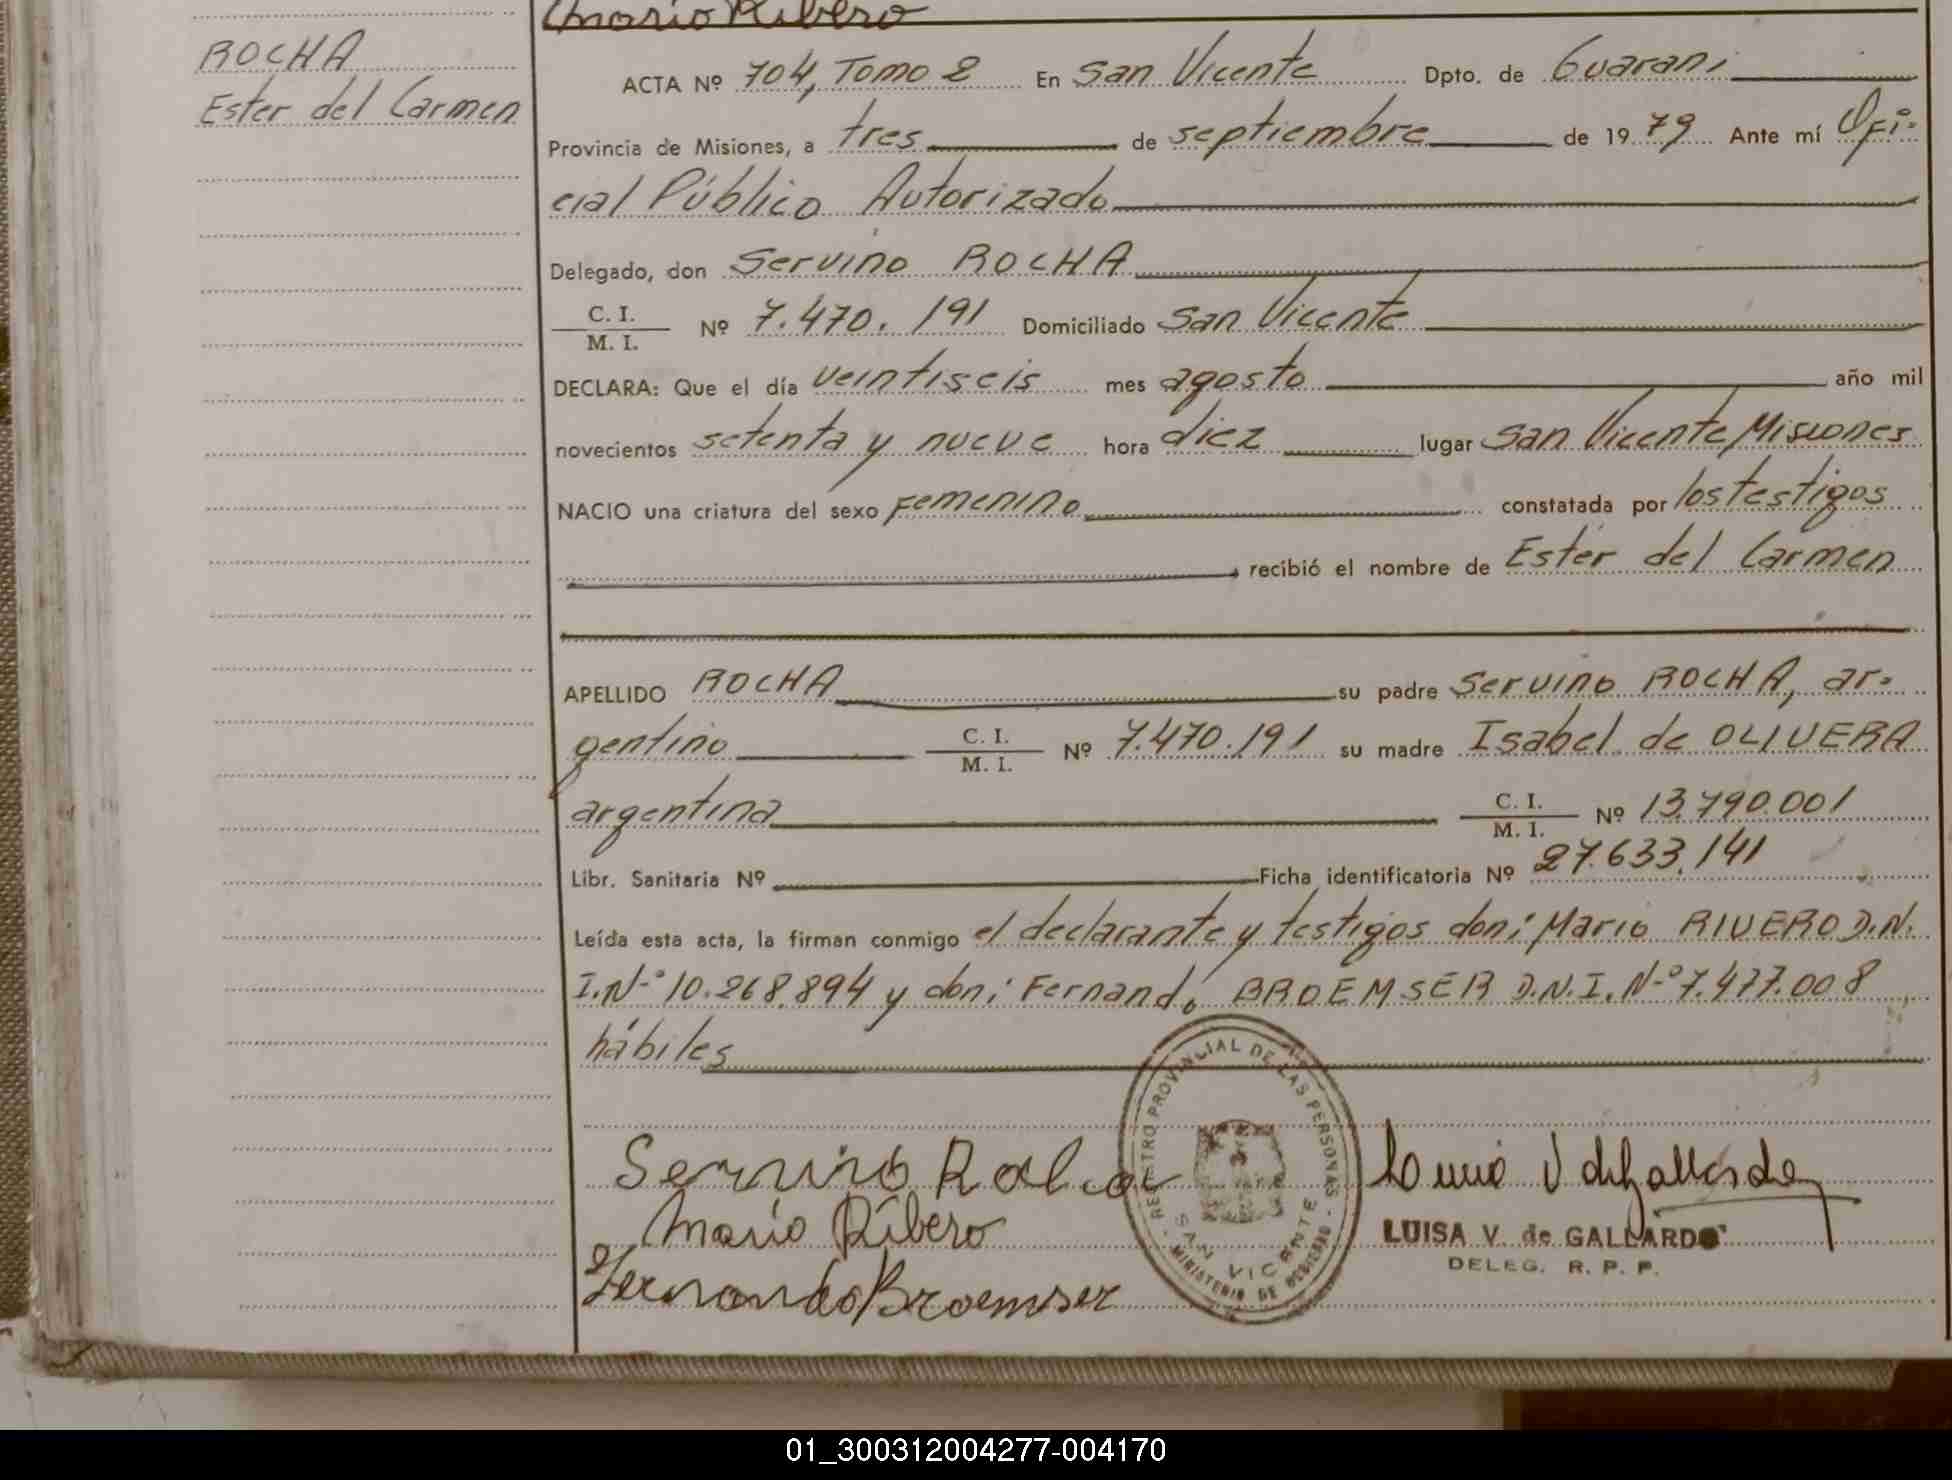 Mario Ribero
ROCHA
Ester del Carmen
ACTA Nº 704, Tomo 2 En San Vicente Dpto. de Guarani
Provincia de Misiones, a tres de septiembre de 1979 Ante mí Ofi-
cial Público Autorizado
Delegado, don Servino ROCHA
C. I.
M. I. Nº 7.470.191 Domiciliado San Vicente
DECLARA: Que el día veintiseis mes agosto año mil
novecientos setenta y nueve hora diez lugar San Vicente Misiones
NACIO una criatura del sexo Femenino constatada por los testigos
recibió el nombre de Ester del Carmen
APELLIDO ROCHA su padre Servino ROCHA, ar-
gentino C. I.
M. I. Nº 7.470.191 su madre Isabel de OLIVERA
argentina C. I.
M. I. Nº 13.790.001
Libr. Sanitaria Nº Ficha identificatoria Nº 27.633.141
Leída esta acta, la firman conmigo el declarante y testigos don: Mario RIVERO D.N.
I. Nº 10.268.894 y don: Fernando BROEMSER D.N.I. Nº 7.477.008
hábiles
Servino Mario Ribero
Fernando Broemser
REGISTRO PROVINCIAL DE LAS PERSONAS
SAN VICENTE
MINISTERIO DE
LUISA V. de GALLARDO
DELEG. R. P. P.
01_300312004277-004170